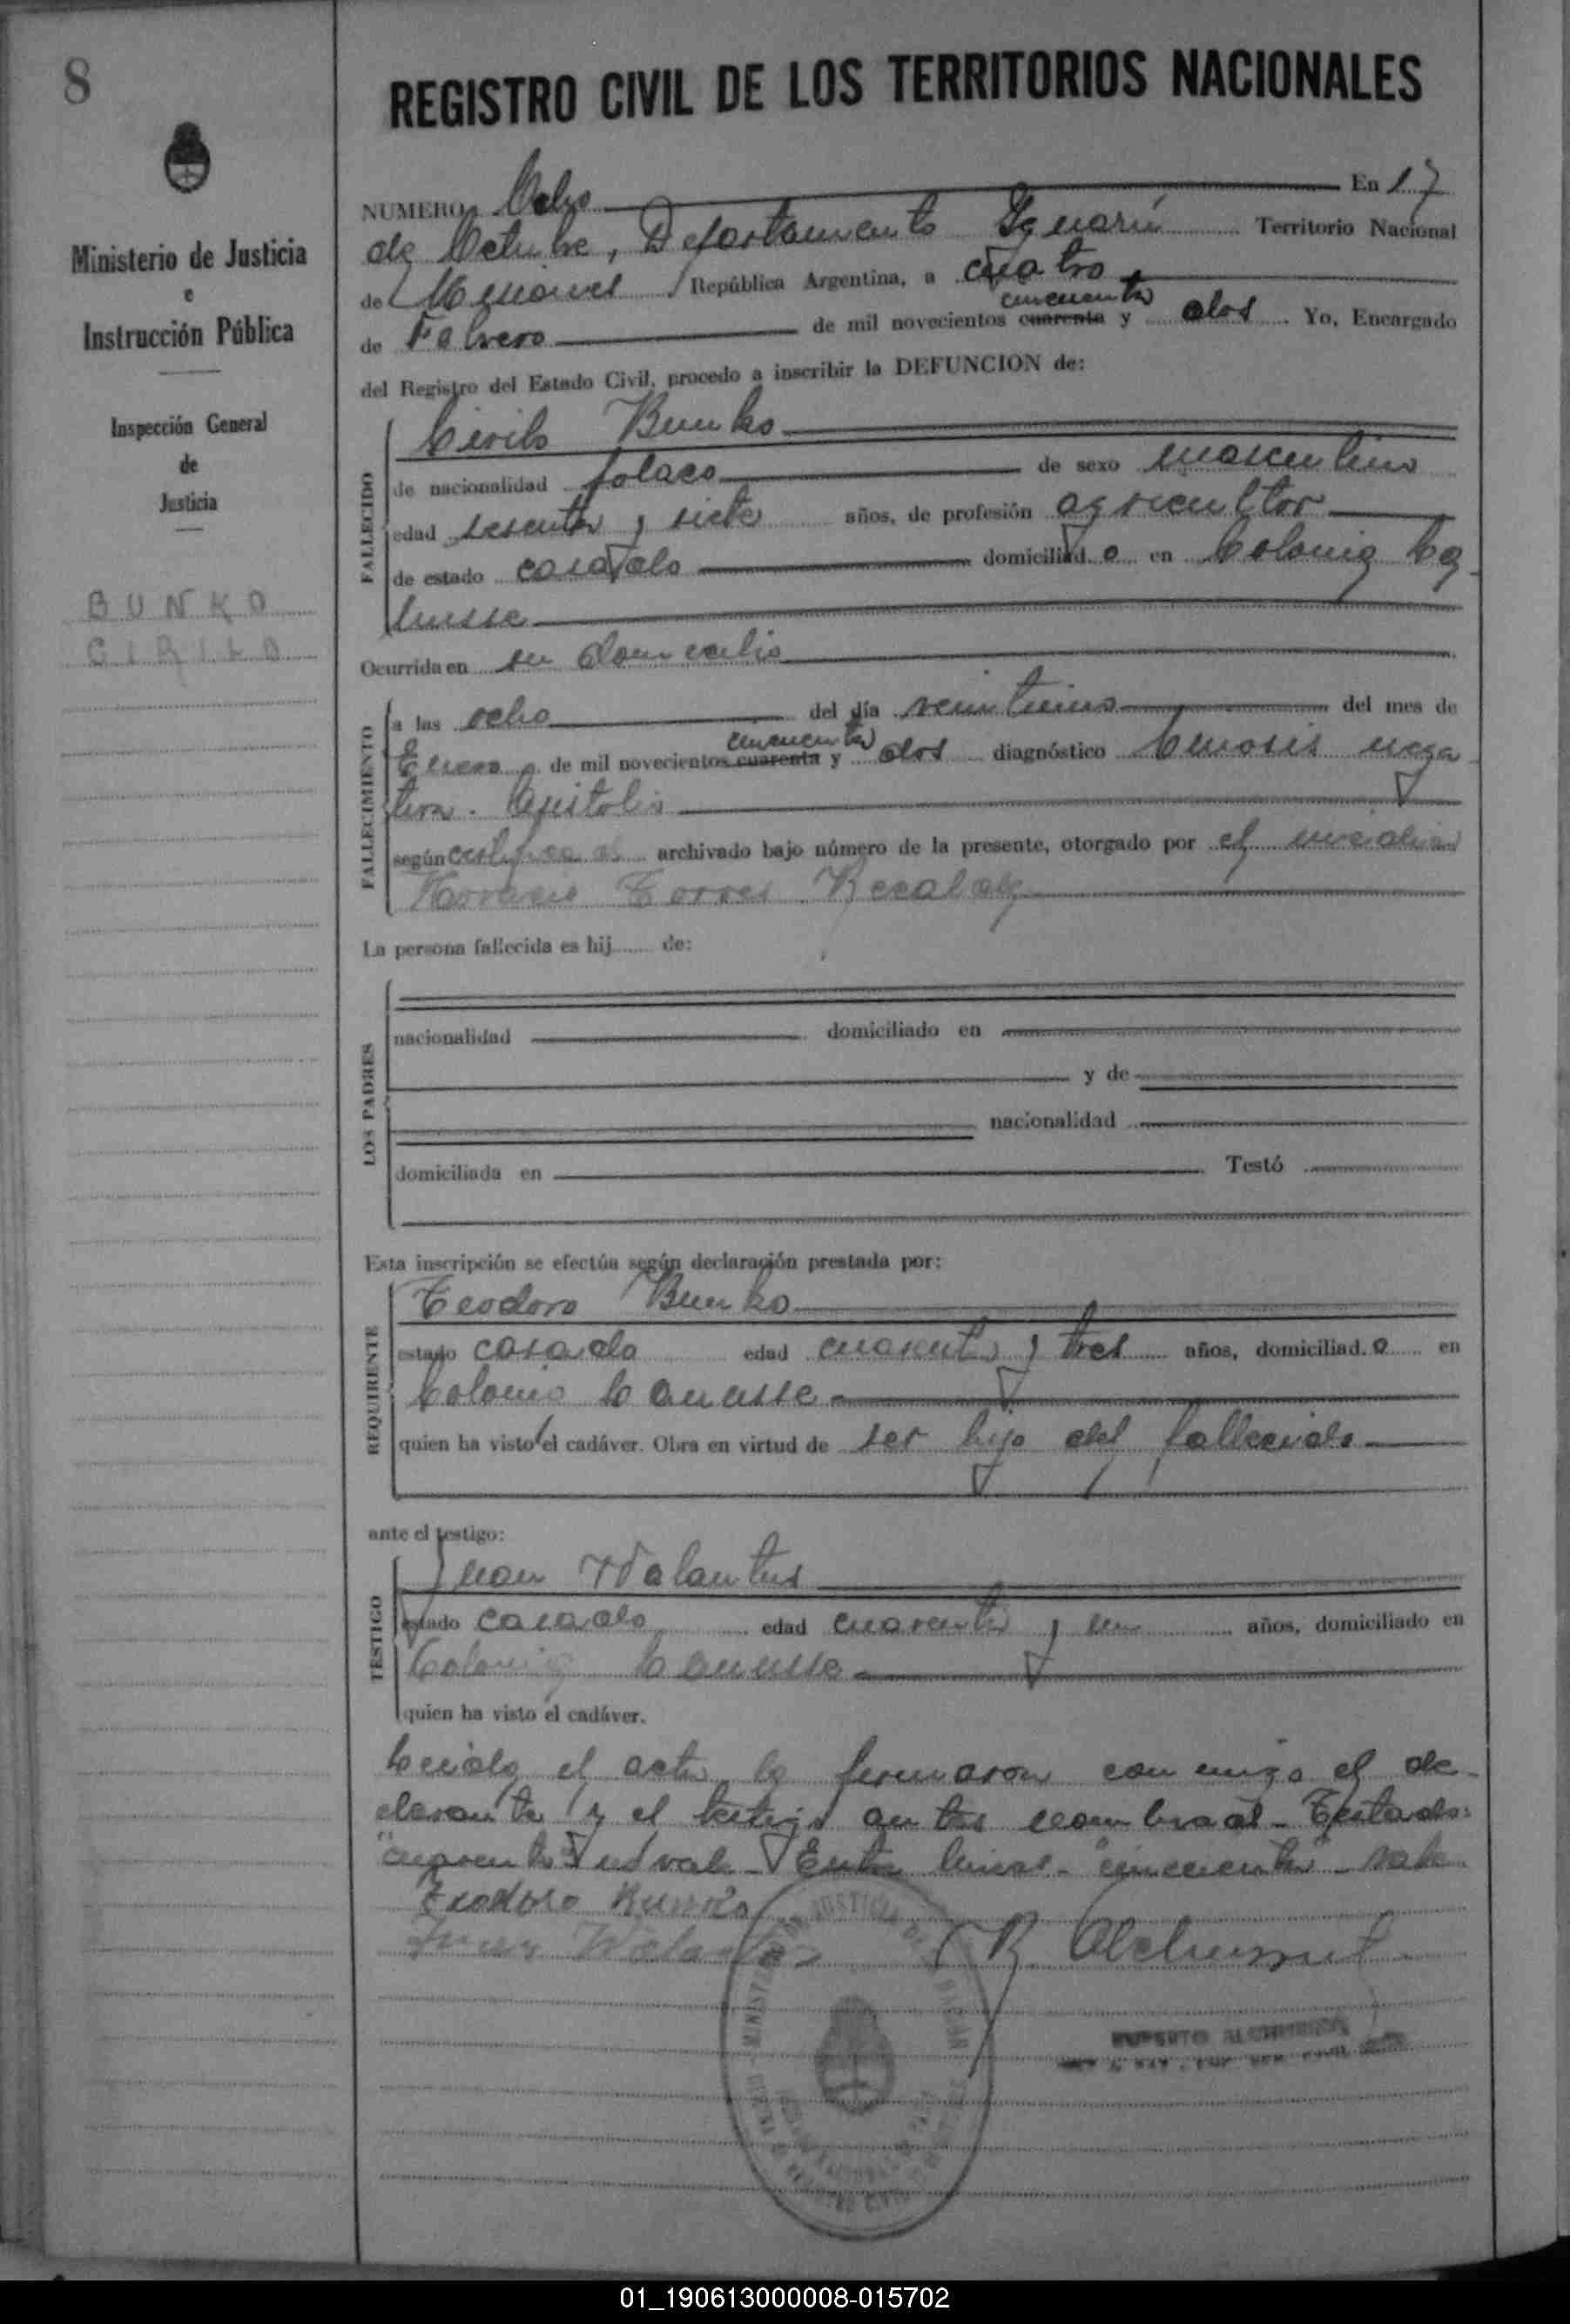 8
REGISTRO CIVIL DE LOS TERRITORIOS NACIONALES
Ministerio de Justicia
e
Instrucción Pública
Inspección General
de
Justicia
BUNKO
CIRILO
NUMERO Ocho En 17
de Octubre, Departamento Iguazú Territorio Nacional
de Misiones República Argentina, a cuatro
cincuenta
de Febrero de mil novecientos cuarenta y dos Yo, Encargado
del Registro del Estado Civil, procedo a inscribir la DEFUNCION de:
FALLECIDO
Cirilo Bunko
de nacionalidad polaco de sexo masculino
edad sesenta y siete años, de profesión agricultor
de estado casado domiciliado en Colonia La-
nusse
Ocurrida en su domicilio
FALLECIMIENTO
a las ocho del día veintiuno del mes de
cincuenta
Enero de mil novecientos cuarenta y dos diagnóstico
según certificado archivado bajo número de la presente, otorgado por el médico
Horacio Torres Recalde
La persona fallecida es hij...... de:
LOS PADRES
nacionalidad domiciliado en
y de
nacionalidad
domiciliada en Testó
Esta inscripción se efectúa según declaración prestada por:
REQUIRENTE
Teodoro Bunko
estado casado edad cuarenta y tres años, domiciliado en
Colonia Lanusse
quien ha visto el cadáver. Obra en virtud de ser hijo del fallecido
ante el testigo:
TESTIGO
Juan Walantus
estado casado edad cuarenta y un años, domiciliado en
Colonia Lanusse
quien ha visto el cadáver.
Leida el acta la firmaron conmigo el de-
clarante y el testigo antes nombrado - Testado:
"cuarenta" no vale - Entre lineas - "cincuenta" - vale
Teodoro Bunko
Juan
R.
01_190613000008-015702